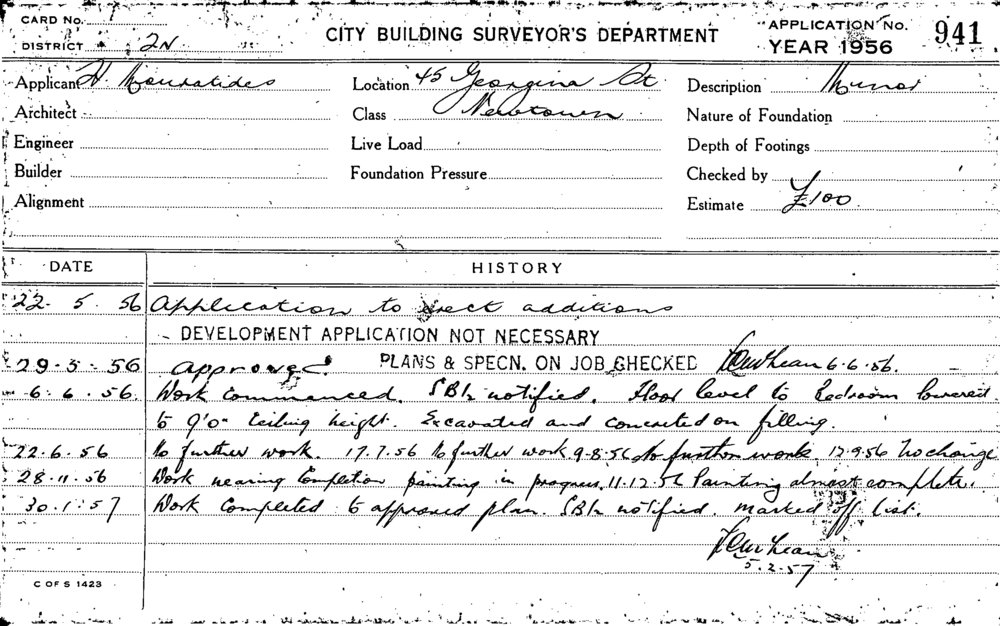 CARD No. 1
DISTRICT 2N
CITY BUILDING SURVEYOR'S DEPARTMENT
APPLICATION No. 941
YEAR 1956
Applicant H. Mouratides
Location 45 Georgina St
Description Minor
Architect
Class Newtown
Nature of Foundation
Engineer
Live Load
Depth of Footings
Builder
Foundation Pressure
Checked by
Alignment
Estimate £100
DATE HISTORY
22. 5. 56 Application to erect additions
DEVELOPMENT APPLICATION NOT NECESSARY
29. 5. 56 Approved. PLANS & SPECN. ON JOB CHECKED 6.6.56.
6. 6. 56. Work commenced. notified. Floor level to Bedroom lowered
to 9'0" ceiling height. Excavated and concreted on filling.
22.6.56 No further work. 17.7.56 No further work. 9-8-56 No further work. 12.9.56 No change
28.11.56 Work nearing Completion painting in progress. 11.12.56 Painting almost complete.
30.1.57 Work Completed to approved plan. notified. marked off list.
5.2.57
C OF S 1423